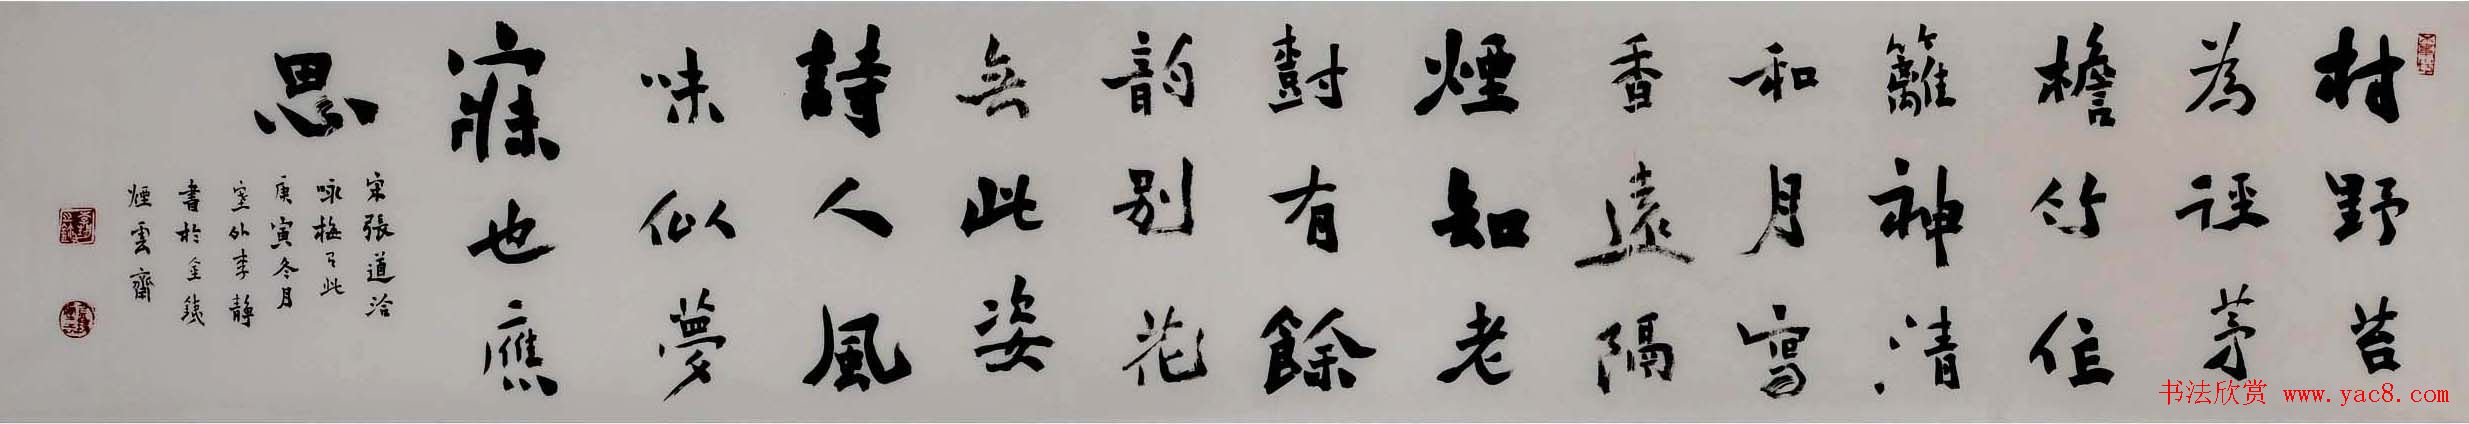 村野苔
為徑茅
檐竹作
籬神清
和月寫
香遠隔
煙知老
樹有餘
韵别花
無此姿
詩人風
味似夢
寐也應
思
宋張道洽
咏梅此
庚寅冬月
塞外李靜
書於金錢
煙雲齋
书法欣赏 www.yac8.com